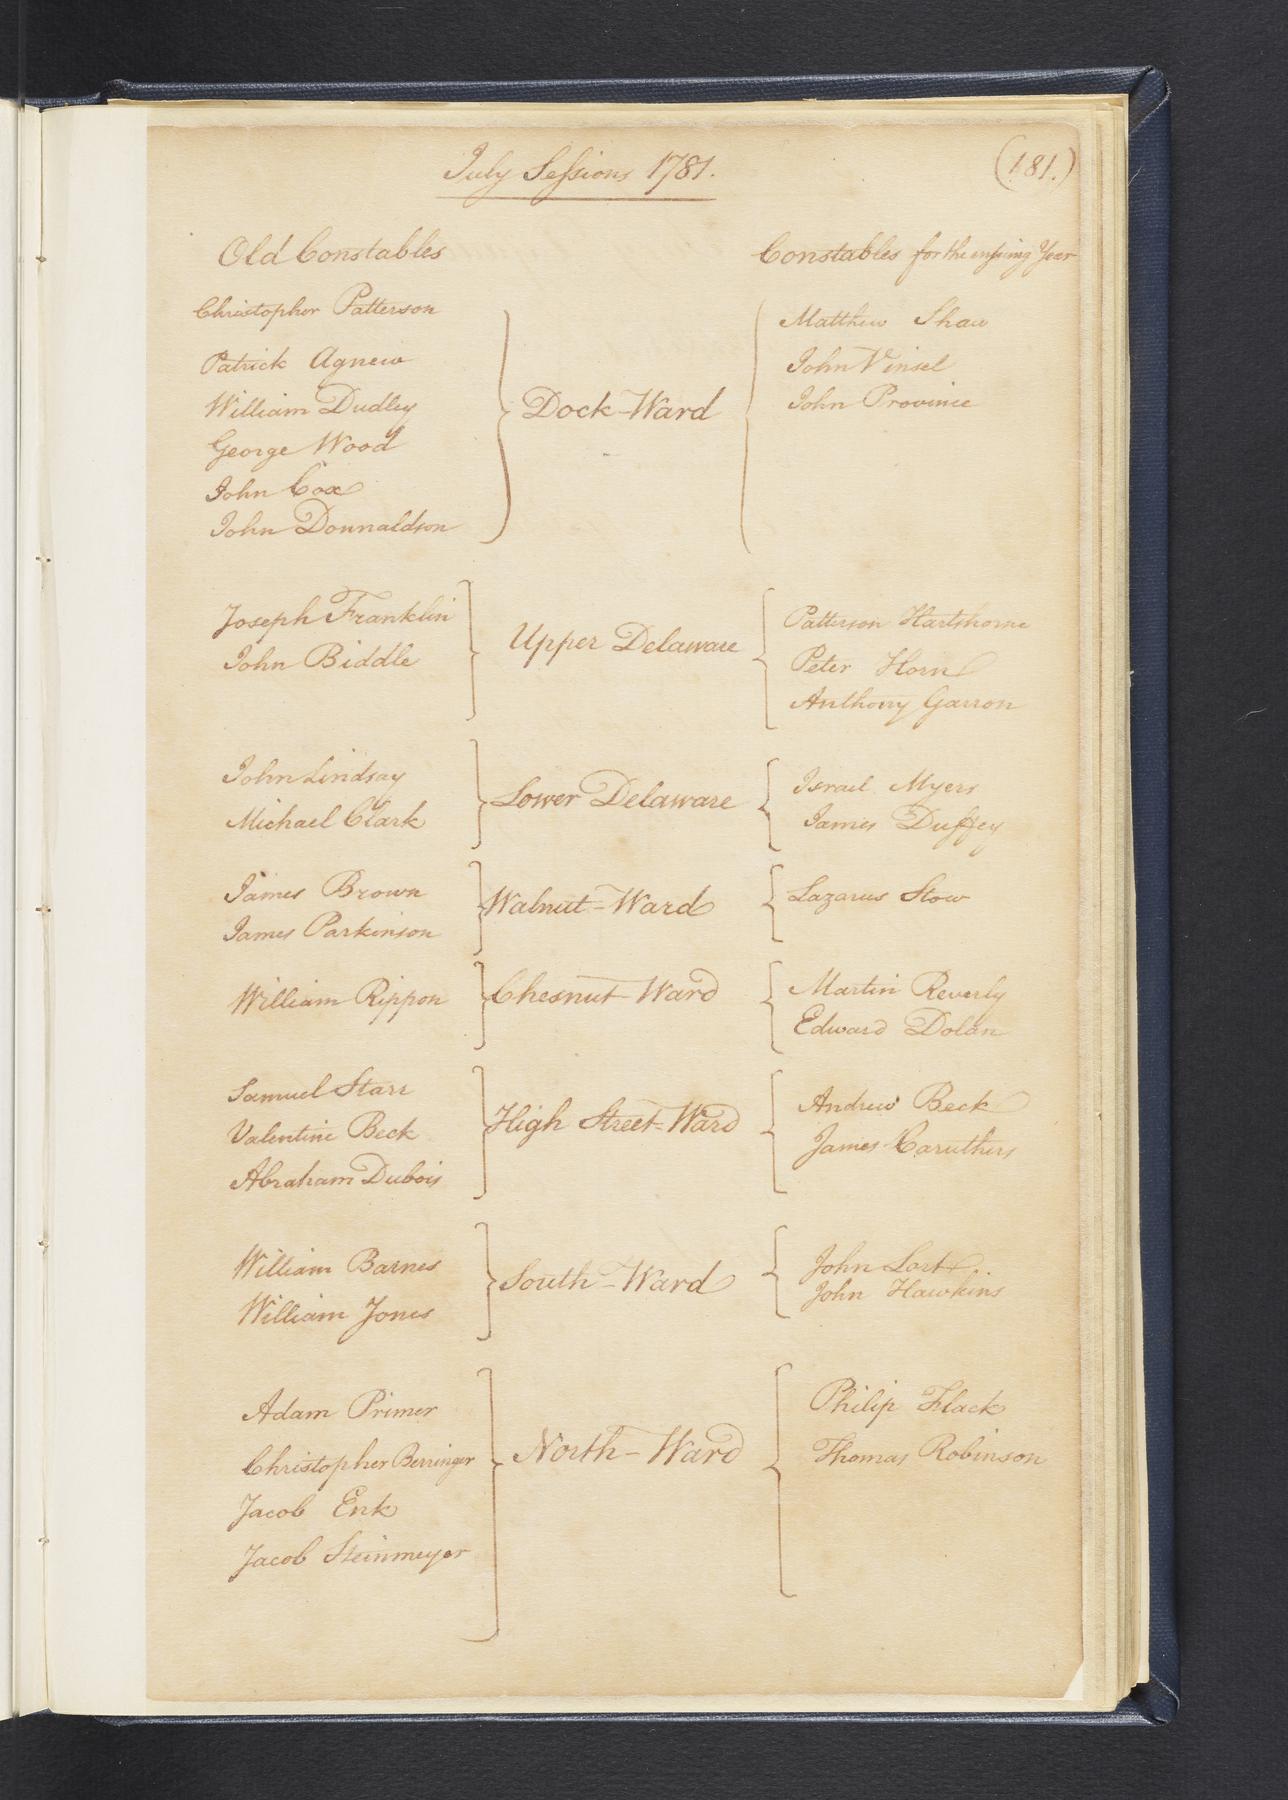 July Sessions 1781.
(181.)
Old Constables
Constables for the ensuing Year
Christopher Patterson
Patrick Agnew
William Dudley
George Wood
John Cox
John Donnaldson
Dock-Ward
Matthew Shaw
John Vinsel
John Province
Joseph Franklin
John Biddle
Upper Delaware
Patterson Hartshorne
Peter Horn
Anthony Garron
John Lindsay
Michael Clark
Lower Delaware
Israel Myers
James Duffey
James Brown
James Parkinson
Walnut-Ward
Lazarus Stow
William Rippon
Chesnut-Ward
Martin Reverly
Edward Dolan
Samuel Starr
Valentine Beck
Abraham Dubois
High Street-Ward
Andrew Beck
James Caruthers
William Barnes
William Jones
South-Ward
John Lort.
John Hawkins
Adam Primer
Christopher Berringer
Jacob Enk
Jacob Steinmeyer
North-Ward
Philip Flack
Thomas Robinson